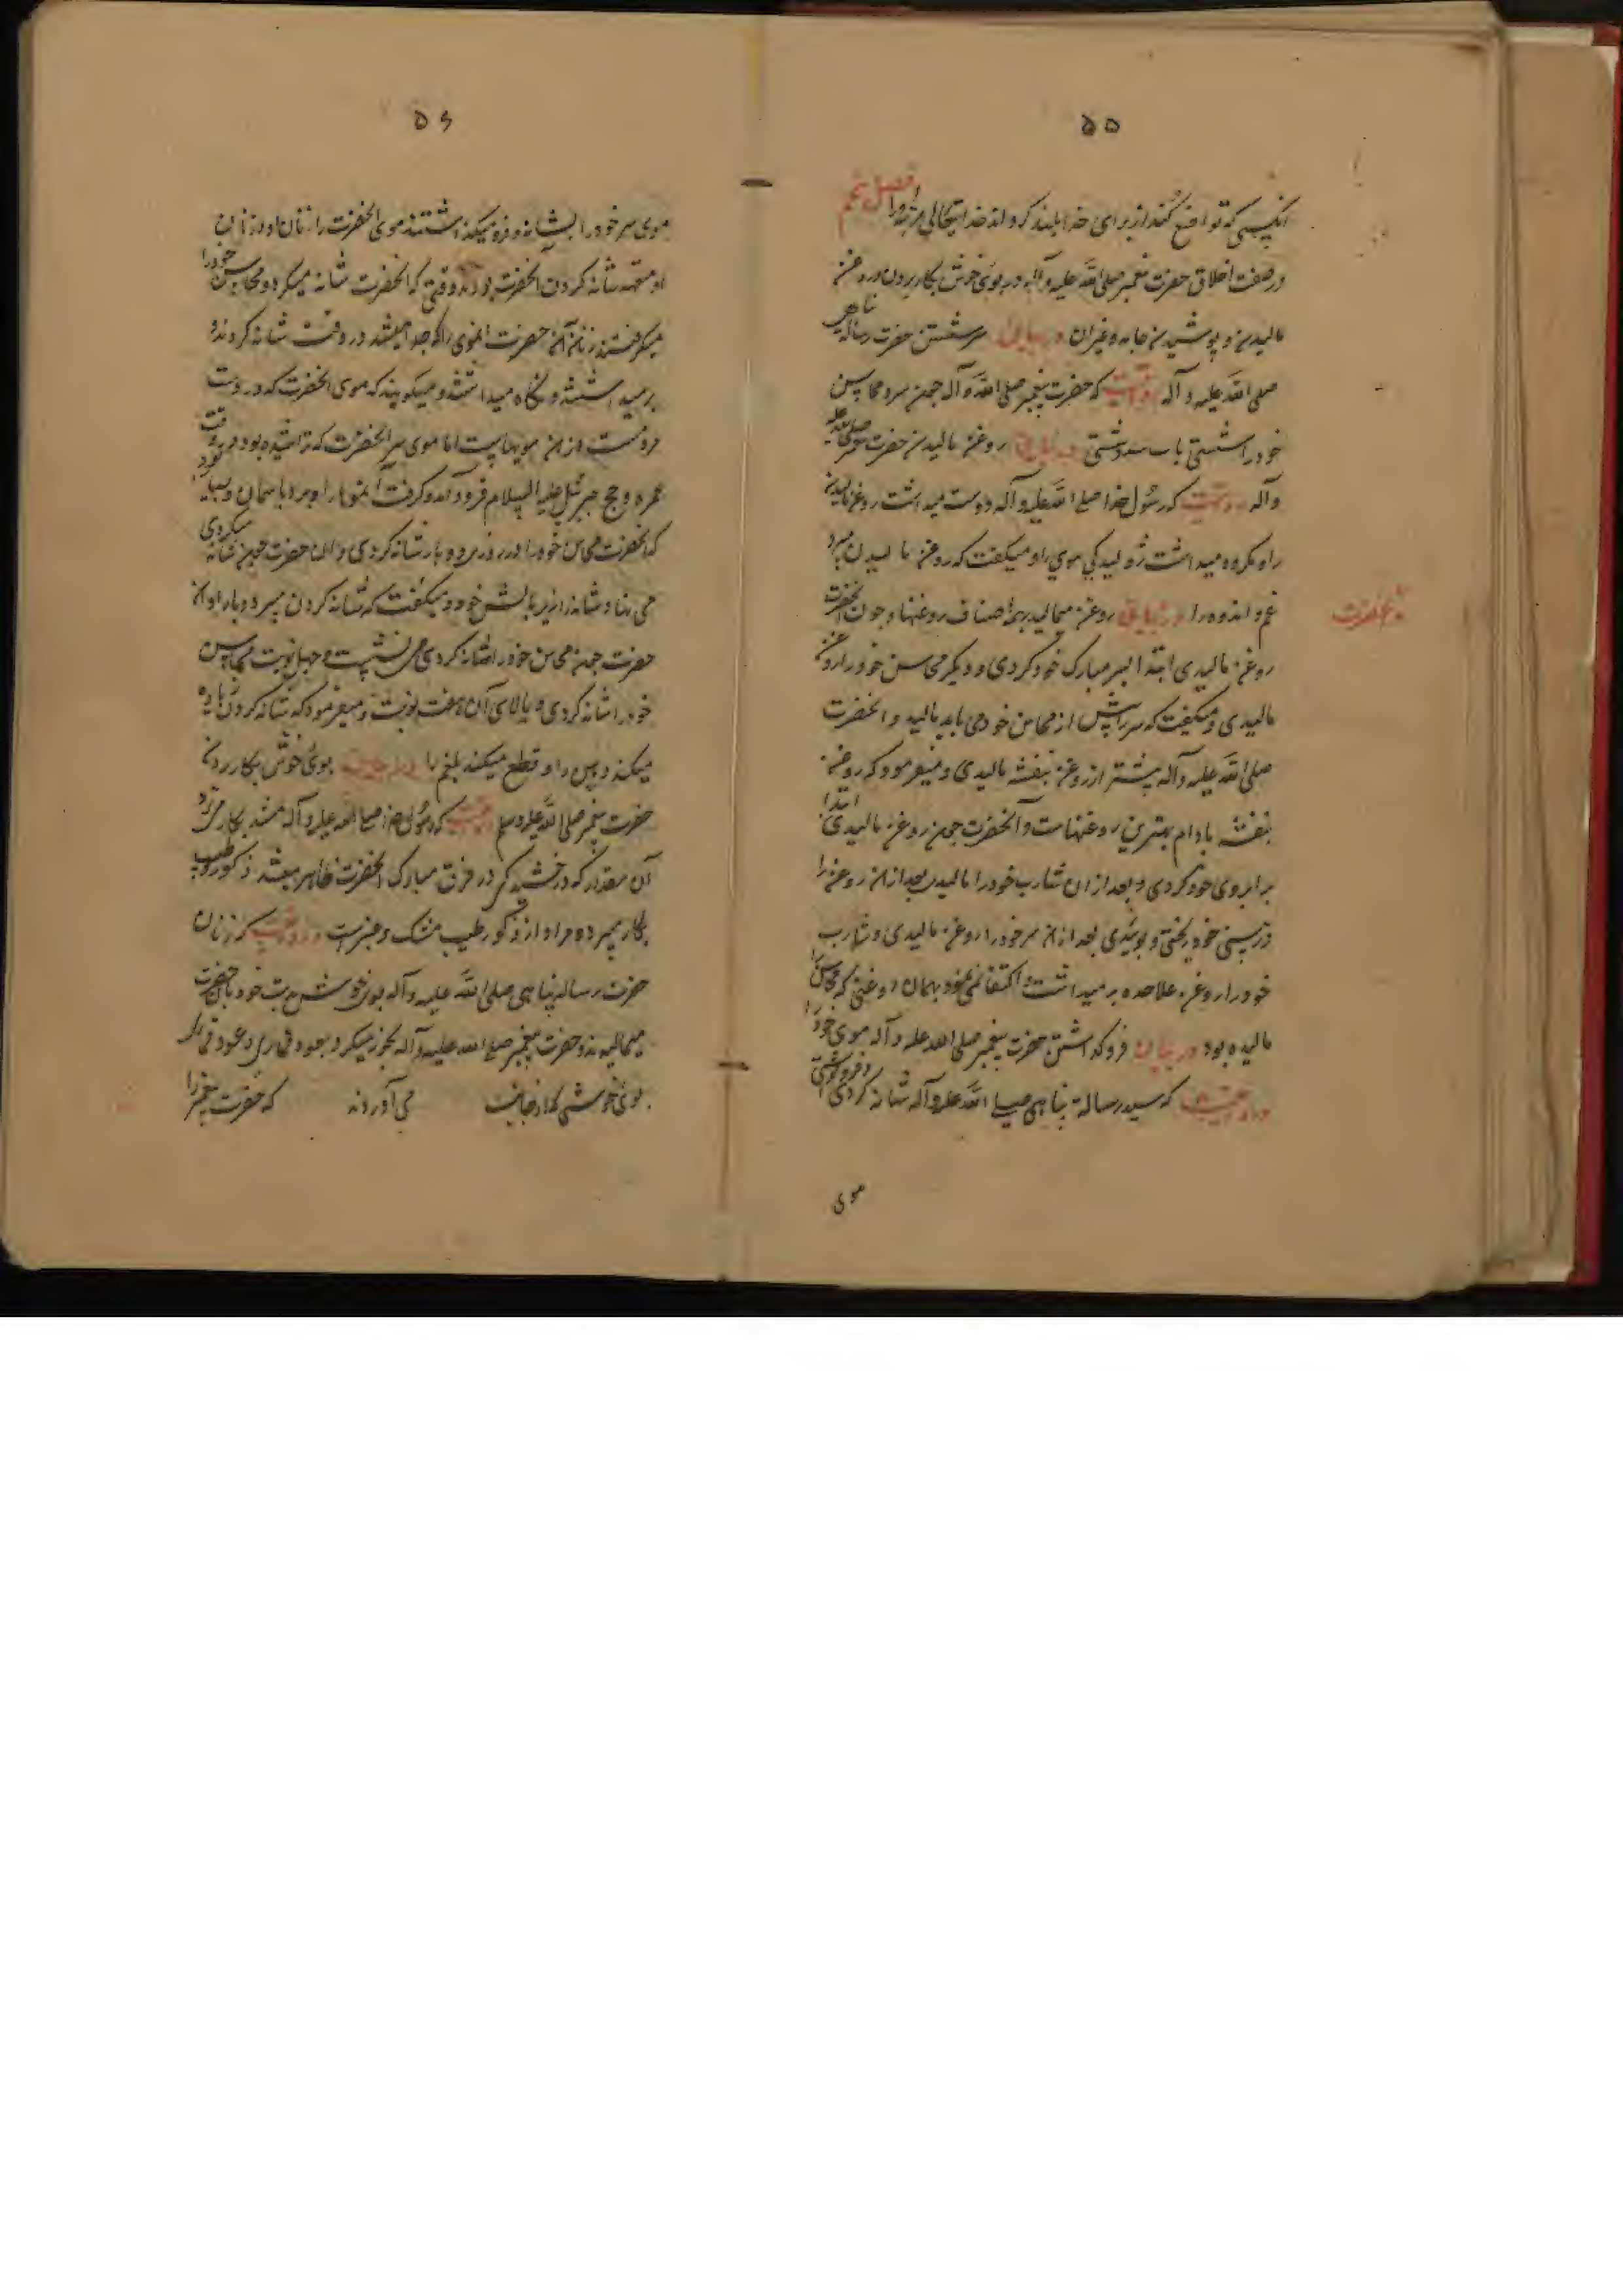 ۵۵
انکسی که تواضع کند از برای خدا بلند کرداند خدایتعالی مرتبه او را فصل پنجم
در صفت اخلاق حضرت پیغمبر صلی الله علیه وآله در بوی خوش بکار بردن و روغن
مالیدن و پوشیدن جامه و غیر آن در بیان سر شستن حضرت رسالة پناهی
صلی الله علیه و آله روایتست که حضرت پیغمبر صلی الله وآله چون سر و محاسن
خود را شستی باب سدر شستی در بیان روغن مالیدن حضرت صلی الله علیه
وآله روایتست که رسول خدا صلی الله علیه وآله دوست میداشت روغن مالیدن
را و مکروه میداشت ژولیدکی موی را و میکفت که روغن مالیدن میبرد
غم و اندوه را در بیان روغن میمالید بهمه اصناف روغنها و چون آنحضرت
روغن مالیدی ابتدا بسر مبارک خود کردی و دیکر محاسن خود را روغن
مالیدی و میکفت که سر را پیش از محاسن خود می باید مالید و آنحضرت
صلی الله علیه وآله بیشتر از روغن بنفشه مالیدی و میفرمود که روغن
بنفشه بادام بهترین روغنهاست و آنحضرت چون روغن مالیدی ابتدا
بر ابروی خود کردی و بعد از ان شارب خود را مالیدی بعد از ان روغن را
در بینی خود ریختی و بوییدی بعد از ان سر خود را روغن مالیدی و شارب
خود را روغن علاحده بر میداشت و اکتفا نمی نمود بهمان روغنی که محاسن را
مالیده بود در بیان فرو کذاشتن حضرت پیغمبر صلی الله علیه وآله موی خود را
روایتست که سید رسالة پناهی صلی الله علیه وآله شانه کردی و فرو
موی
۵۶
موی سر خود را بشانه و فرو میکذاشتند موی آنحضرت را زنان او و زنان
او متعهد شانه کردن آنحضرت بودند و وقتی که آنحضرت شانه میکرد و محاسن خود را
میکرفتند زنان آن حضرت آنموی را که جدا میشد در وقت شانه کردن و
بر میداشتند و نکاه میداشتند و میکویند که موی آنحضرت که در دست
مردمست از ان مویهاست اما موی سر آنحضرت که تراشیده بود در وقت
عمره و حج جبرئیل علیه السلام فرود آمد و کرفت آنمویها را و برد باسمان و بسیار بود
که آنحضرت محاسن خود را در روزی دو بار شانه کردی و ان حضرت چون شانه میکردی
می نهاد شانه را زیر بالش خود و میکفت که شانه کردن میبرد وبا را و ان
حضرت چون محاسن خود را شانه کردی می نشست و چهل نوبت محاسن
خود را شانه کردی و بالای آن هفت نوبت و میفرمود که شانه کردن زیاده
میکند ذهن را و قطع میکند بلغم را در بیان بوی خوش بکار بردن
حضرت پیغمبر صلی الله علیه وسلم روایتست که رسول خدا صلی الله علیه وآله مشک بکار می برد
آن مقدار که درخشیدکی در فرق مبارک آنحضرت ظاهر میشد و ذکور طیب
بکار میبرد و مراد از ذکور طیب مشک و عنبر است و روایتست که زنان
حضرت رسالة پناهی صلی الله علیه وآله بوی خوش بدست خود بانحضرت
میمالیدند و حضرت پیغمبر صلی الله علیه وآله بخور میکرد بعود قماری و عود قماری
بوی خوشی که از جانب می آوردند که حضرت پیغمبر را